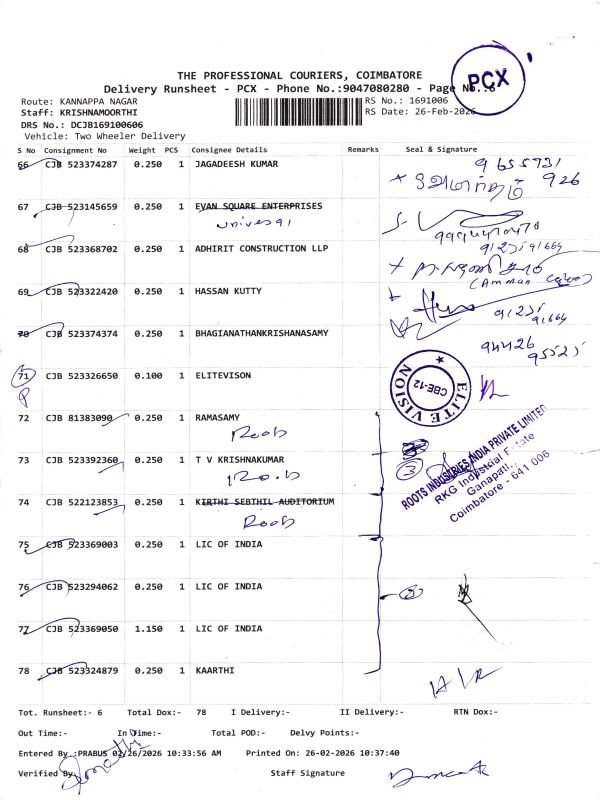 THE PROFESSIONAL COURIERS, COIMBATORE
PCX
Delivery Runsheet - PCX - Phone No.:9047080280 - Page No.:6
Route: KANNAPPA NAGAR
RS No.: 1691006
Staff: KRISHNAMOORTHI
RS Date: 26-Feb-2026
DRS No.: DCJB169100606
Vehicle: Two Wheeler Delivery
S No Consignment No Weight PCS Consignee Details Remarks Seal & Signature
66 CJB 523374287 0.250 1 JAGADEESH KUMAR
9655731
926
67 CJB 523145659 0.250 1 EVAN SQUARE ENTERPRISES
68 CJB 523368702 0.250 1 ADHIRIT CONSTRUCTION LLP
69 CJB 523322420 0.250 1 HASSAN KUTTY
70 CJB 523374374 0.250 1 BHAGIANATHANKRISHANASAMY
71 CJB 523326650 0.100 1 ELITEVISON
ELITE VISION
CBE-12
72 CJB 81383090 0.250 1 RAMASAMY
73 CJB 523392360 0.250 1 T V KRISHNAKUMAR
3
ROOTS INDUSTRIES INDIA PRIVATE LIMITED
RKG Industrial Estate
Ganapati,
Coimbatore - 641 006
74 CJB 522123853 0.250 1 KIRTHI SEBTHIL AUDITORIUM
75 CJB 523369003 0.250 1 LIC OF INDIA
76 CJB 523294062 0.250 1 LIC OF INDIA
77 CJB 523369050 1.150 1 LIC OF INDIA
78 CJB 523324879 0.250 1 KAARTHI
Tot. Runsheet:- 6 Total Dox:- 78 I Delivery:- II Delivery:- RTN Dox:-
Out Time:- In Time:- Total POD:- Delvy Points:-
Entered By :PRABUS 02/26/2026 10:33:56 AM Printed On: 26-02-2026 10:37:40
Verified By Staff Signature